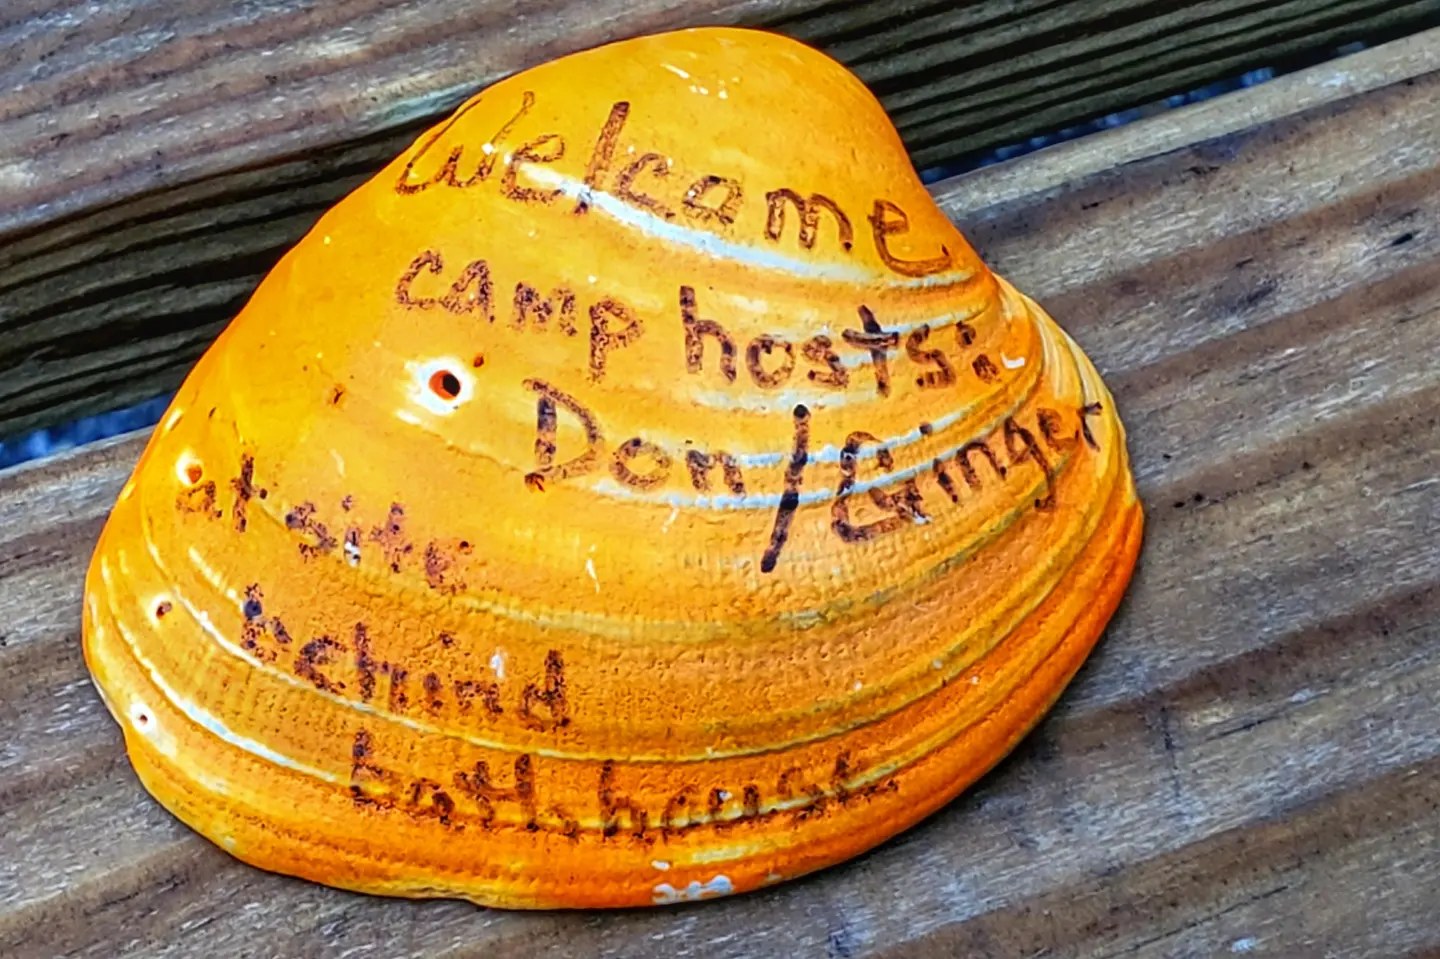 Welcome
camp hosts:
Don/Ginger
at site
behind
bath house